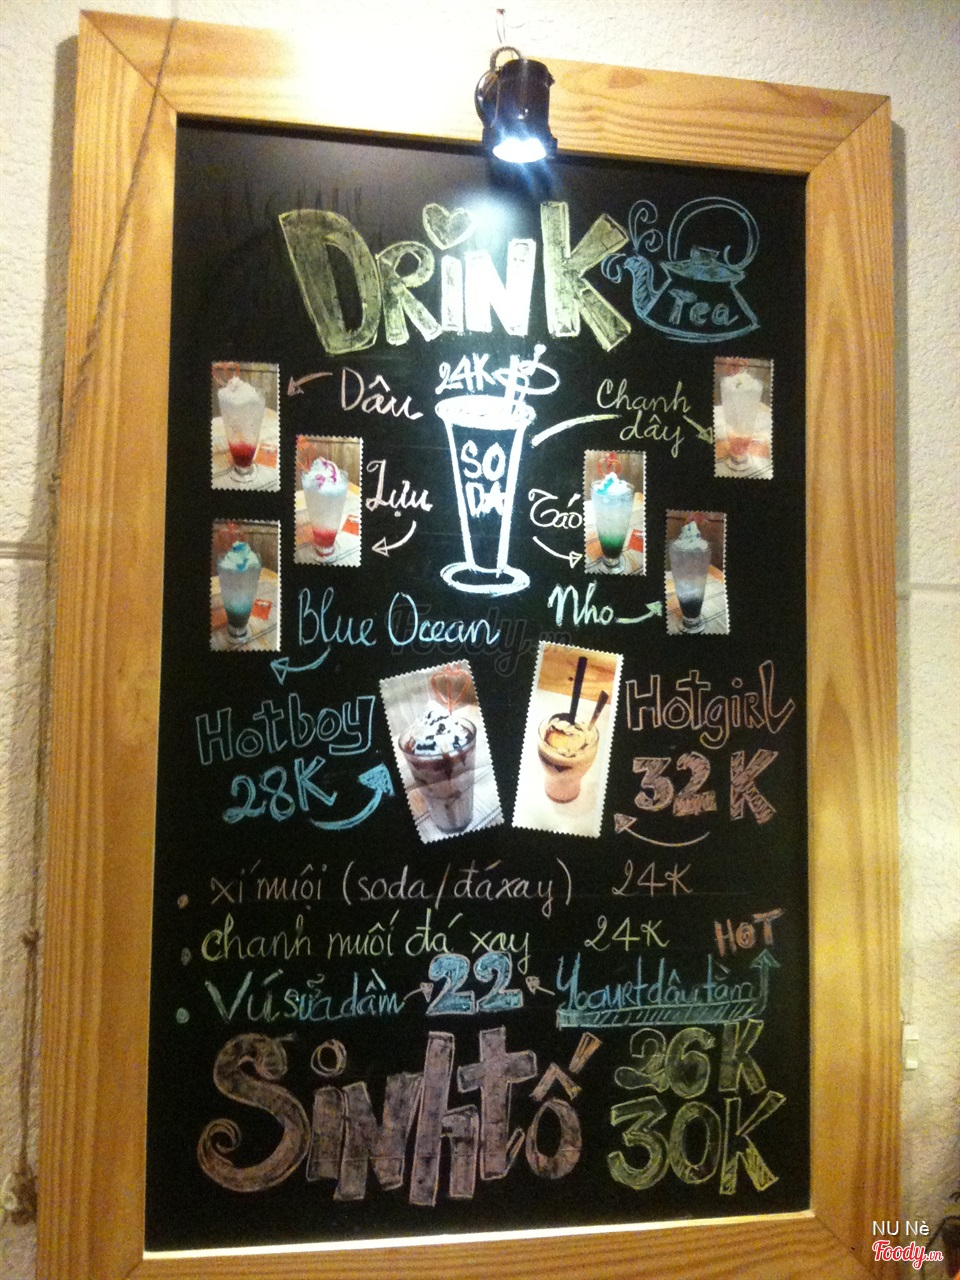 DRiNK
Tea
24K
Dâu
Chanh
dây
SO
DA
Lựu
Táo
Blue Ocean
Nho
Hotboy
28K
Hotgirl
32K
xí muội (soda/đáxay) 24K
chanh muối đá xay 24K
HOT
Vú sữa dầm 22 Yogurt dâu tằm
Sinh tố 26K
30K
Foody.vn
NU Nè
Foody.vn